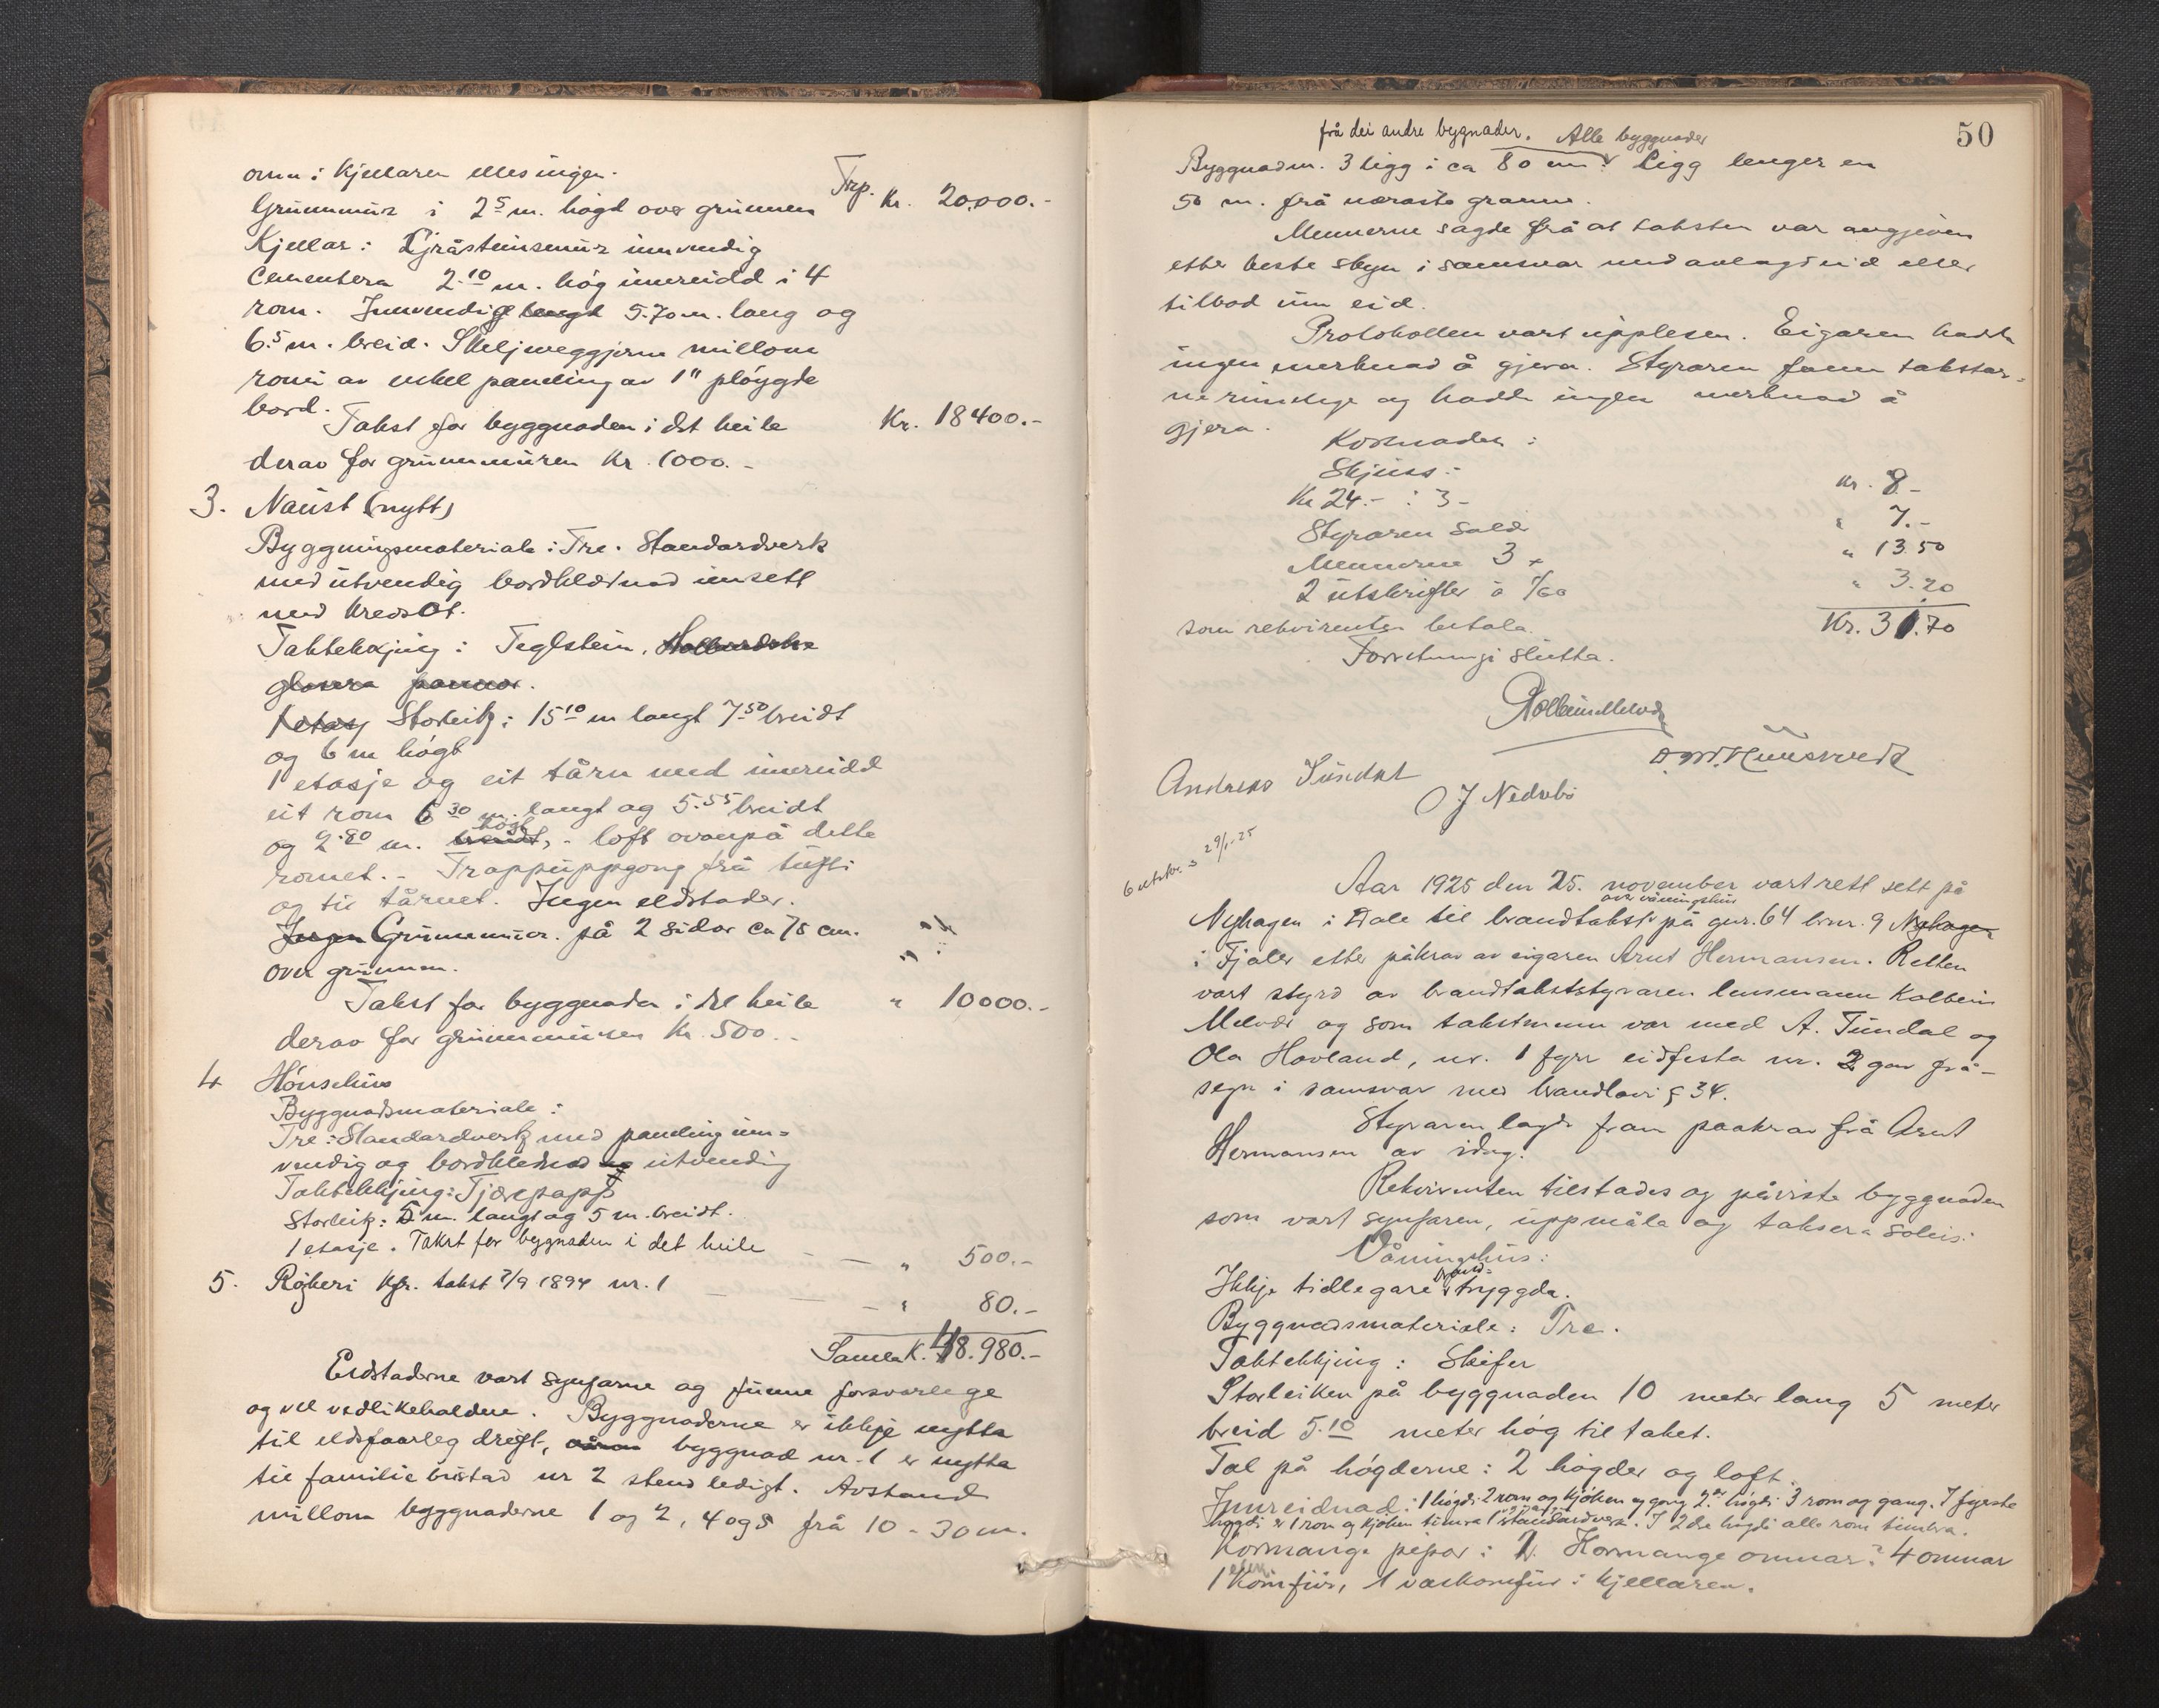 omn i kjellaren elles ingen.
Grunnmur i 2.5 m. högd over grunnen Trp. Kr. 20,000.-
Kjellar: Gråsteinsmur innvendig
Cementera 2.10 m. hög innreidd i 4
rom. Innvendig lengd 5.70 m. lang og
6.5 m. breid. Skiljeveggjerne millom
romi av enkel paneling av 1" plöygde
bord.
Takst for byggnaden i det heile Kr. 18400.-
derav for grunnmuren Kr. 1000.-
3. Naust (nytt)
Byggningsmateriale: Tre. Standardverk
med utvendig bordklædnad innsett
med kreosot.
Taktekkjing: Teglstein, Hollendske
glasera pannor.
1 etasj Storleik: 15.10 m langt 7.50 breidt
og 6 m högt
1 etasje og eit tårn med innreidd
eit rom 6.30 m. langt og 5.55 breidt
og 2.80 m. breidt, högt - loft ovanpå dette
romet. - Trappuppgong frå tufti
og til tårnet. Ingen eldstader.
Ingen Grunnmur. på 2 sidor ca 75 cm.
over grunnen.
Takst for byggnaden i det heile " 10000.-
derav for grunnmuren Kr. 500.-
4 Hönsehus
Byggnadsmateriale:
Tre: Standardverk med paneling inn-
vendig og bordklednad og utvendig
Taktekkjing: Tjærepapp
Storleik: 5 m. langt og 5 m. breidt.
1 etasje. Takst for bygnaden i det heile - - " 500.-
5. Rökeri Kfr. takst 7/9 1894 nr. 1 - - - " 80.-
Samla K. 48.980.-
Eldstaderne vart synfarne og funne forsvarlege
og vel vedlikehaldne. Byggnaderne er ikkje nytta
til eldsfaarleg dreft, byggnad nr. 1 er nytta
til familiebustad nr 2 stend ledigt. Avstand
millom byggnaderne 1 og 2, 4 og 5 frå 10 - 30 m.
50
frå dei andre bygnader. Alle byggnader
Byggnad nr. 3 ligg i ca 80 m Ligg lenger en
50 m. frå næraste granne.
Mennerne sagde frå at taksten var avgjeven
etter beste skyn i samsvar med avlagd eid eller
tilbod um eid.
Protokollen vart upplesen. Eigaren hadde
ingen merknad å gjera. Styraren fann takstar-
ne rimelege og hadde ingen merknad å
gjera.
Kostnader:
Skjuss:
Kr 24.- : 3 - Kr. 8.-
Styraren sals " 7.-
Mennerne 3 " " 13.50
2 utskrifter à 1/60 " 3.20
som rekvirenten betala. Kr. 31.70
Forretningi slutta.
Kolbein Melvær
Andreas Tündal
O J Nedrebö
6 utskr. 29/1-25
Aar 1925 den 25. november vart rett sett på
over våningshus
Nyhagen i Dale til brandtakst på gnr. 64 bnr. 9 Nyhagen
i Fjaler etter påkrav av eigaren Arnt Hermansen. Retten
vart styrd av brandtakststyraren lensmann Kolbein
Melvær og som takstmenn var med A. Tundal og
Ola Hovland, nr. 1 fyrr eidfesta nr. 2 gav frå-
segn i samsvar med brandlovi § 34.
Styraren lagde fram paakrav frå Arnt
Hermansen av idag.
Rekvirenten tilstades og påviste byggnaden
som vart synfaren, uppmåla og taksera soleis:
Våningshus:
Ikkje tidlegare brand-tryggda.
Byggnadsmateriale: Tre.
Taktekkjing: Skifer
Storleiken på byggnaden 10 meter lang 5 meter
breid 5.10 meter hög til taket.
Tal på högderne: 2 högder og loft.
Innreidnad: 1 högdi 2 rom og kjöken og gang 2. högdi 3 rom og gang. I fyrste
högdi er 1 rom og kjöken timra 1 standardverk. I 2dre högdi alle rom timbra.
Kormange pipor: 1. Kormange omnar: 4 omnar
1 komfür, 1 vaskomfür i kjellaren.